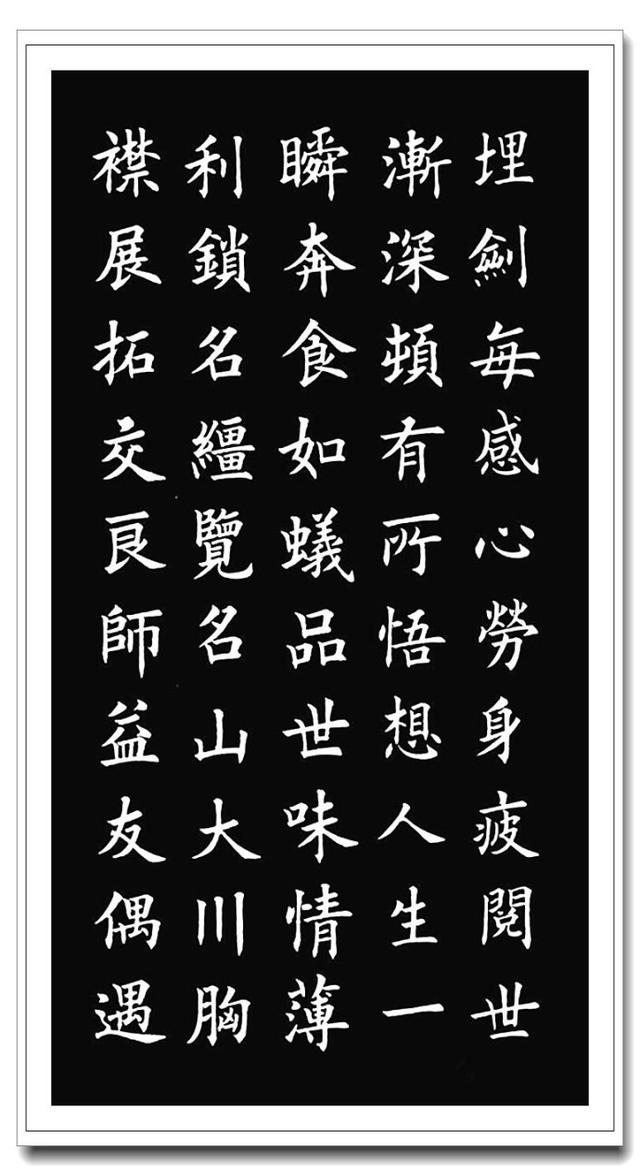 埋劍每感心勞身疲閱世
漸深頓有所悟想人生一
瞬奔食如蟻品世味情薄
利鎖名繮覽名山大川胸
襟展拓交良師益友偶遇